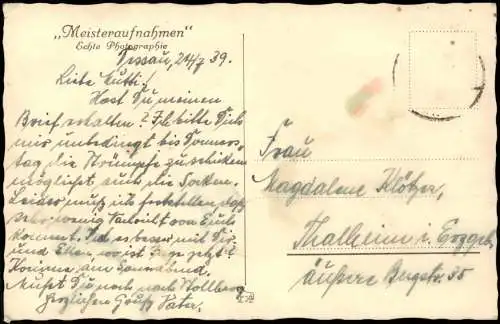 „Meisteraufnahmen"
Echte Photographie
Dessau, 24/7 39.
Liebe Mutti!
Hast Du meinen
Brief erhalten? Ich bitte Dich
mir unbedingt bis Donners-
tag die Strümpfe zu schicken
möglichst auch die Socken.
Leider muß ich feststellen daß
sehr wenig Nachricht von Euch
kommt. es besser mit Dir
und wo ist jetzt?
Komme am Sonnabend.
Mußt Du noch nach Stollberg
Herzlichen Gruß Vater.
Frau
Magdalene Klötzer,
Thalheim i. Erzgeb.
äußere Bergstr. 35